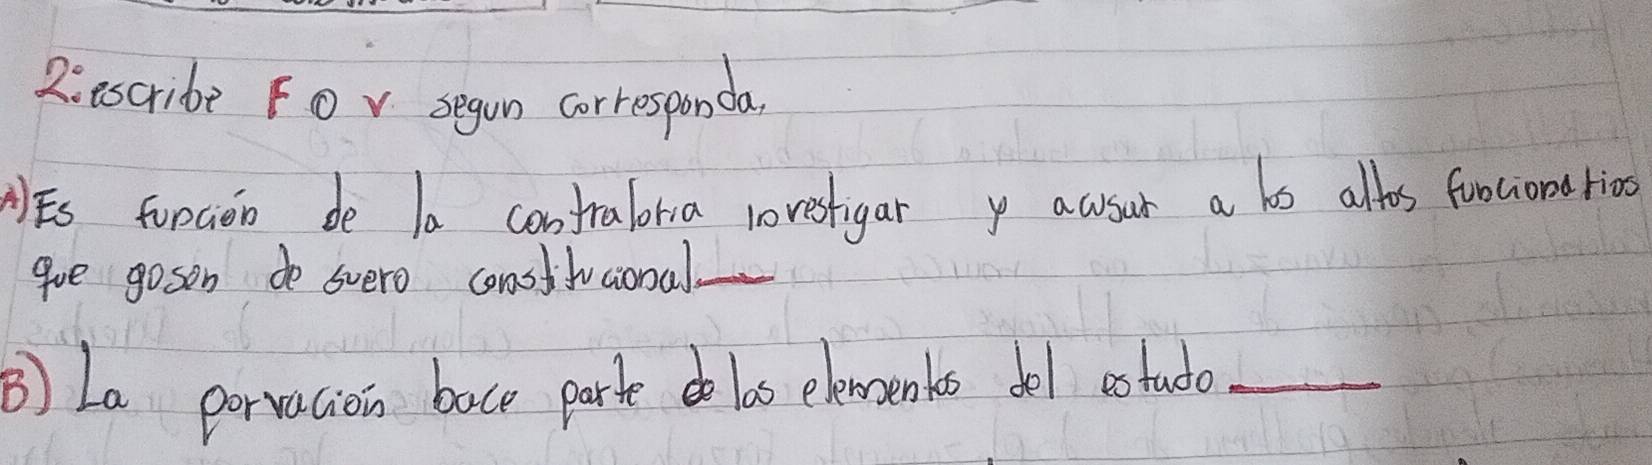 2: escribe F o V segun corresponda,
A) Es función de la contraloria investigar y acusar a los altos funcionarios
que gosen de suero constitucional ___
B) La porvación hace parte de los elementos del estado ___